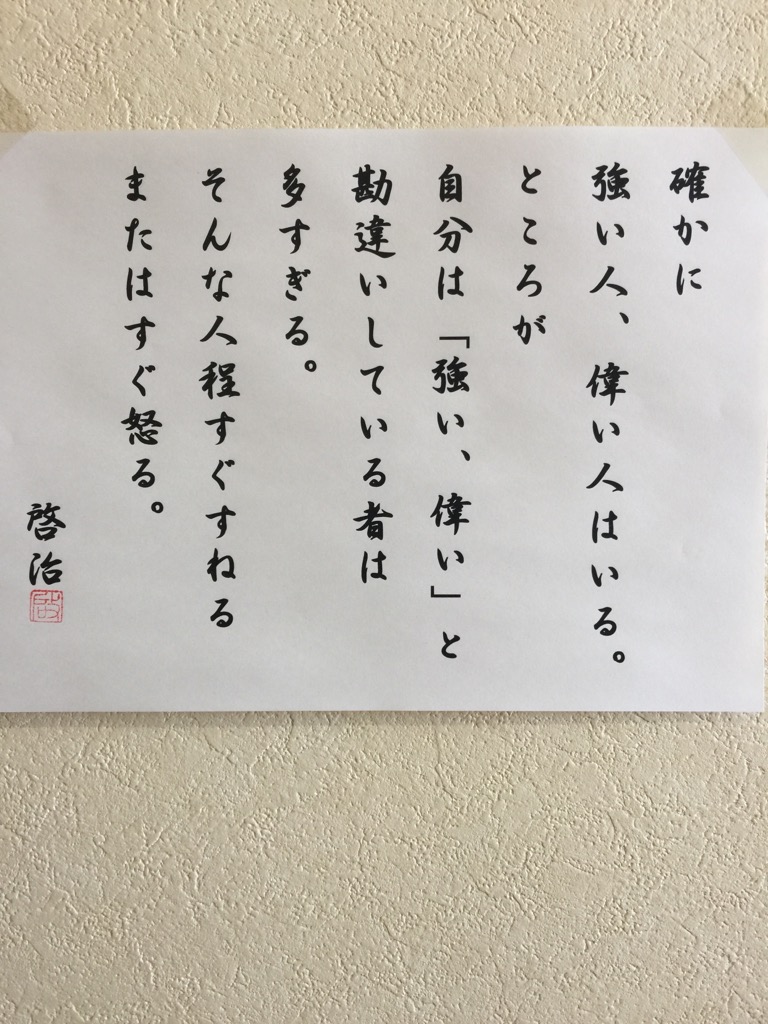 確かに
強い人、偉い人はいる。
ところが
自分は「強い、偉い」と
勘違いしている者は
多すぎる。
そんな人程すぐすねる
またはすぐ怒る。
啓治